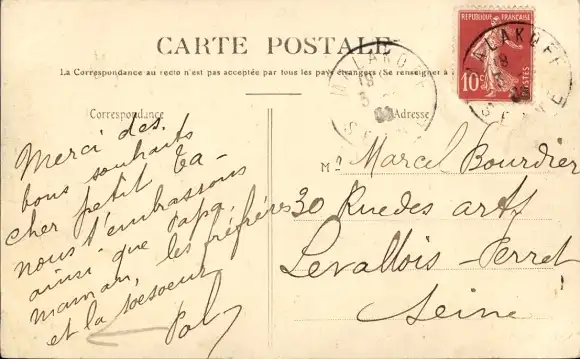 CARTE POSTALE
La Correspondance au recto n'est pas acceptée par tous les pays étrangers (Se renseigner à
Correspondance
Adresse
RÉPUBLIQUE FRANÇAISE
10c
POSTES
MALAKOFF
SEINE
MALAKOFF
SEINE
Merci des
bons souhaits
cher petit
nous t'embrassons
ainsi que papa,
maman, les
et la
Mr Marcel Bourdier
30 Rue des arts
Levallois-Perret
Seine